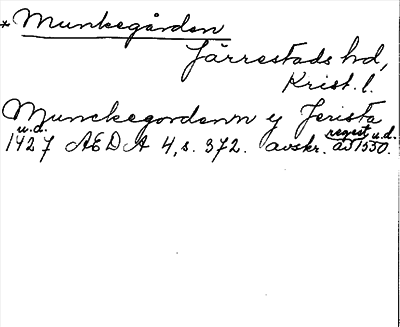 * Munkegården
Järrestads hd,
Krist. l.
Munckegordenn y Jerista
u.d. regest u.d.
1427 AEDA 4, s. 372. avskr. av 1550.